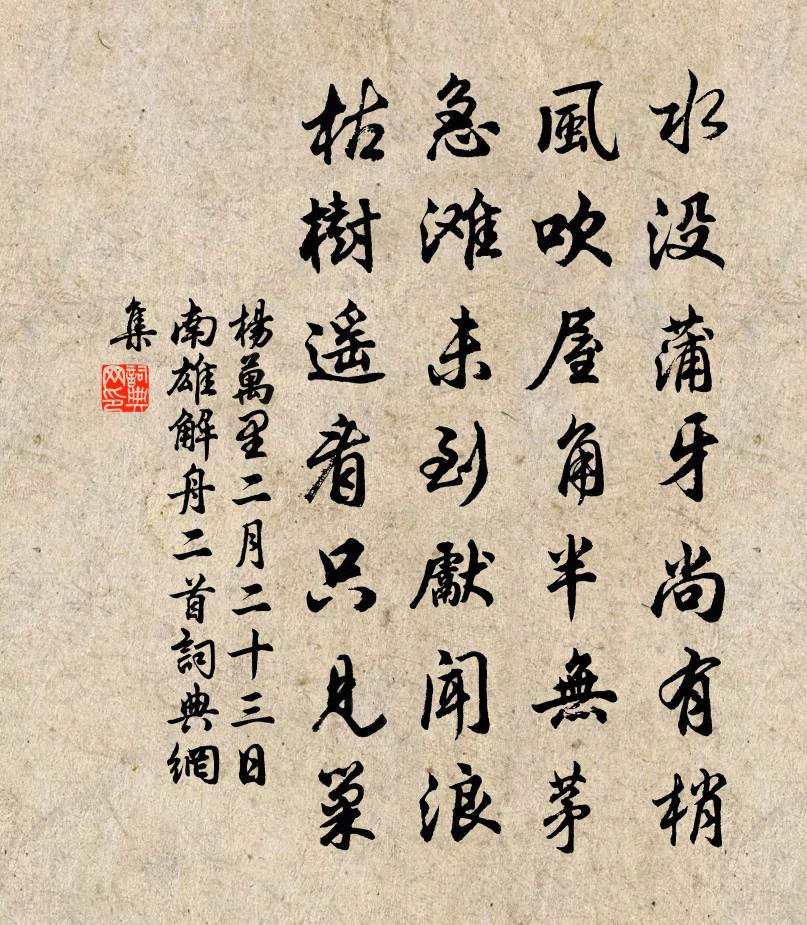 水没蒲牙尚有梢
風吹屋角半無茅
急滩未到獻聞浪
枯樹遥看只見巢
楊萬里二月二十三日
南雄解舟二首詞典網
集
詞典网印